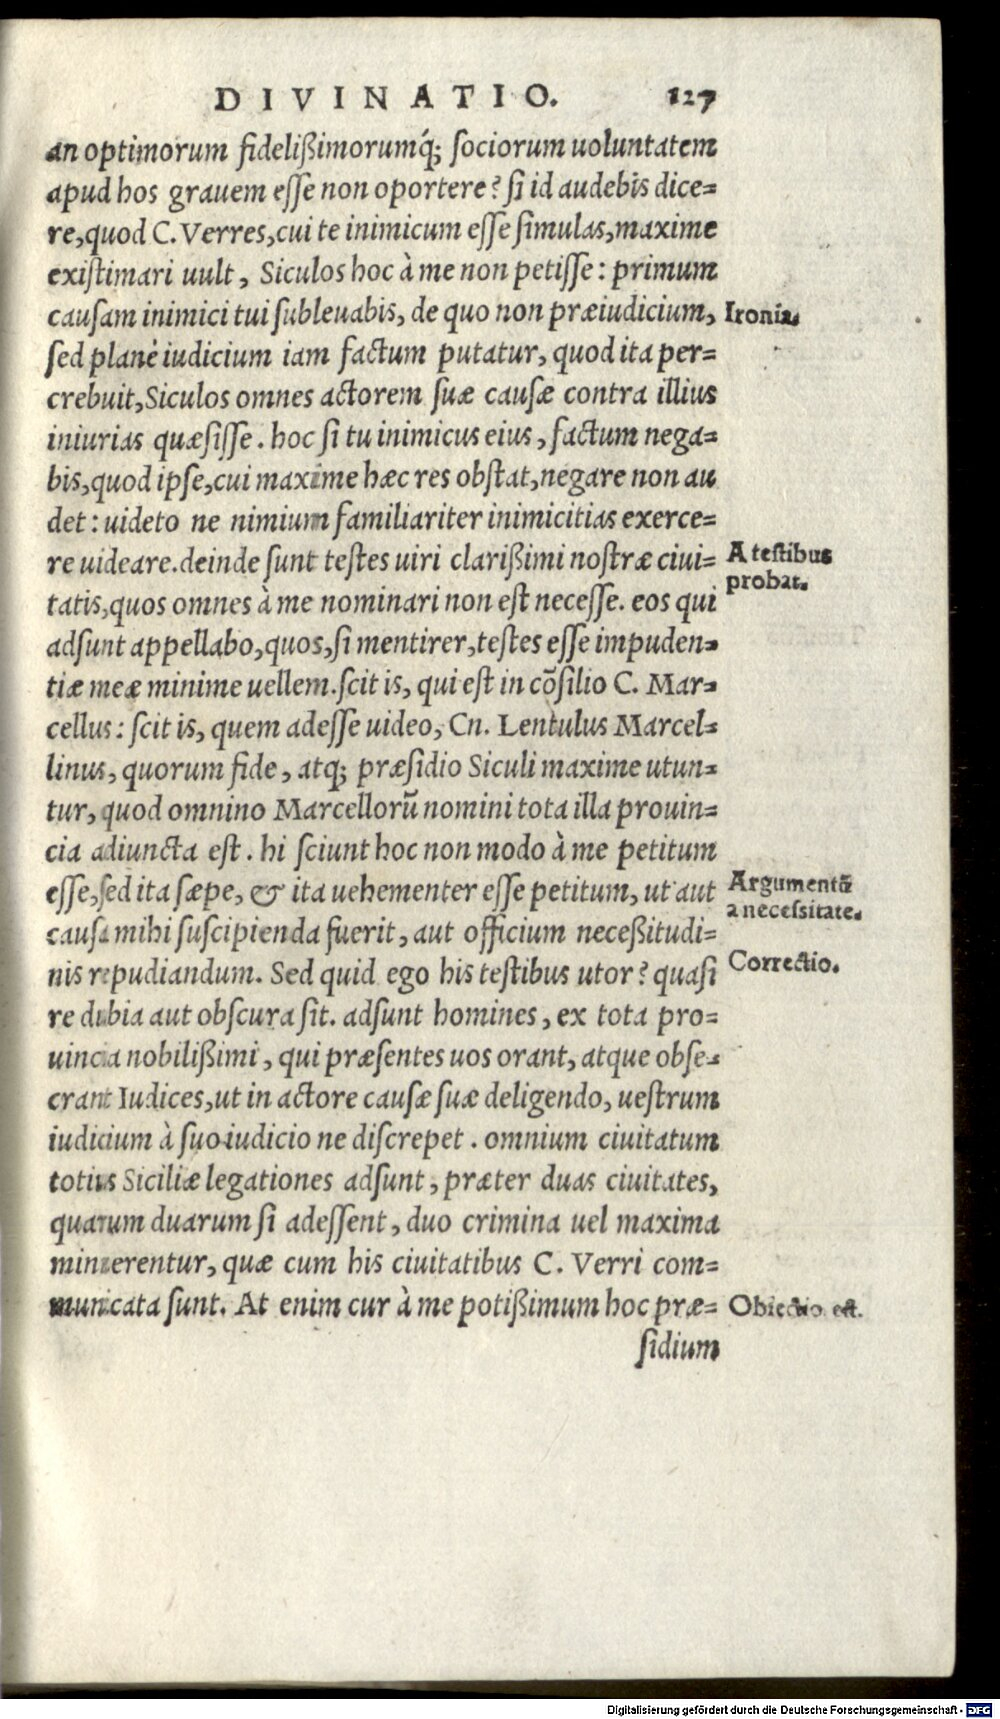 DIVINATIO. 127
an optimorum fidelißimorumq́; sociorum uoluntatem
apud hos grauem esse non oportere? si id audebis dice=
re, quod C. Verres, cui te inimicum esse simulas, maxime
existimari uult, Siculos hoc à me non petisse: primum
causam inimici tui subleuabis, de quo non præiudicium,
Ironia.
sed planè iudicium iam factum putatur, quod ita per=
crebuit, Siculos omnes actorem suæ causæ contra illius
iniurias quæsisse. hoc si tu inimicus eius, factum nega=
bis, quod ipse, cui maxime hæc res obstat, negare non au
det: uideto ne nimium familiariter inimicitias exerce=
re uideare. deinde sunt testes uiri clarißimi nostræ ciui=
A testibus
probat.
tatis, quos omnes à me nominari non est necesse. eos qui
adsunt appellabo, quos, si mentirer, testes esse impuden=
tiæ meæ minime uellem. scit is, qui est in cōsilio C. Mar=
cellus: scit is, quem adesse uideo, Cn. Lentulus Marcel=
linus, quorum fide, atq; præsidio Siculi maxime utun=
tur, quod omnino Marcellorū nomini tota illa prouin=
cia adiuncta est. hi sciunt hoc non modo à me petitum
esse, sed ita sæpe, & ita uehementer esse petitum, ut aut
Argumentū
a necessitate.
causa mihi suscipienda fuerit, aut officium neceßitudi=
nis repudiandum. Sed quid ego his testibus utor? quasi
Correctio.
re dubia aut obscura sit. adsunt homines, ex tota pro=
uincia nobilißimi, qui præsentes uos orant, atque obse=
crant Iudices, ut in actore causæ suæ deligendo, uestrum
iudicium à suo iudicio ne discrepet. omnium ciuitatum
totius Siciliæ legationes adsunt, præter duas ciuitates,
quarum duarum si adessent, duo crimina uel maxima
minuerentur, quæ cum his ciuitatibus C. Verri com=
municata sunt. At enim cur à me potißimum hoc præ=
Obiectio est.
sidium
Digitalisierung gefördert durch die Deutsche Forschungsgemeinschaft - DFG